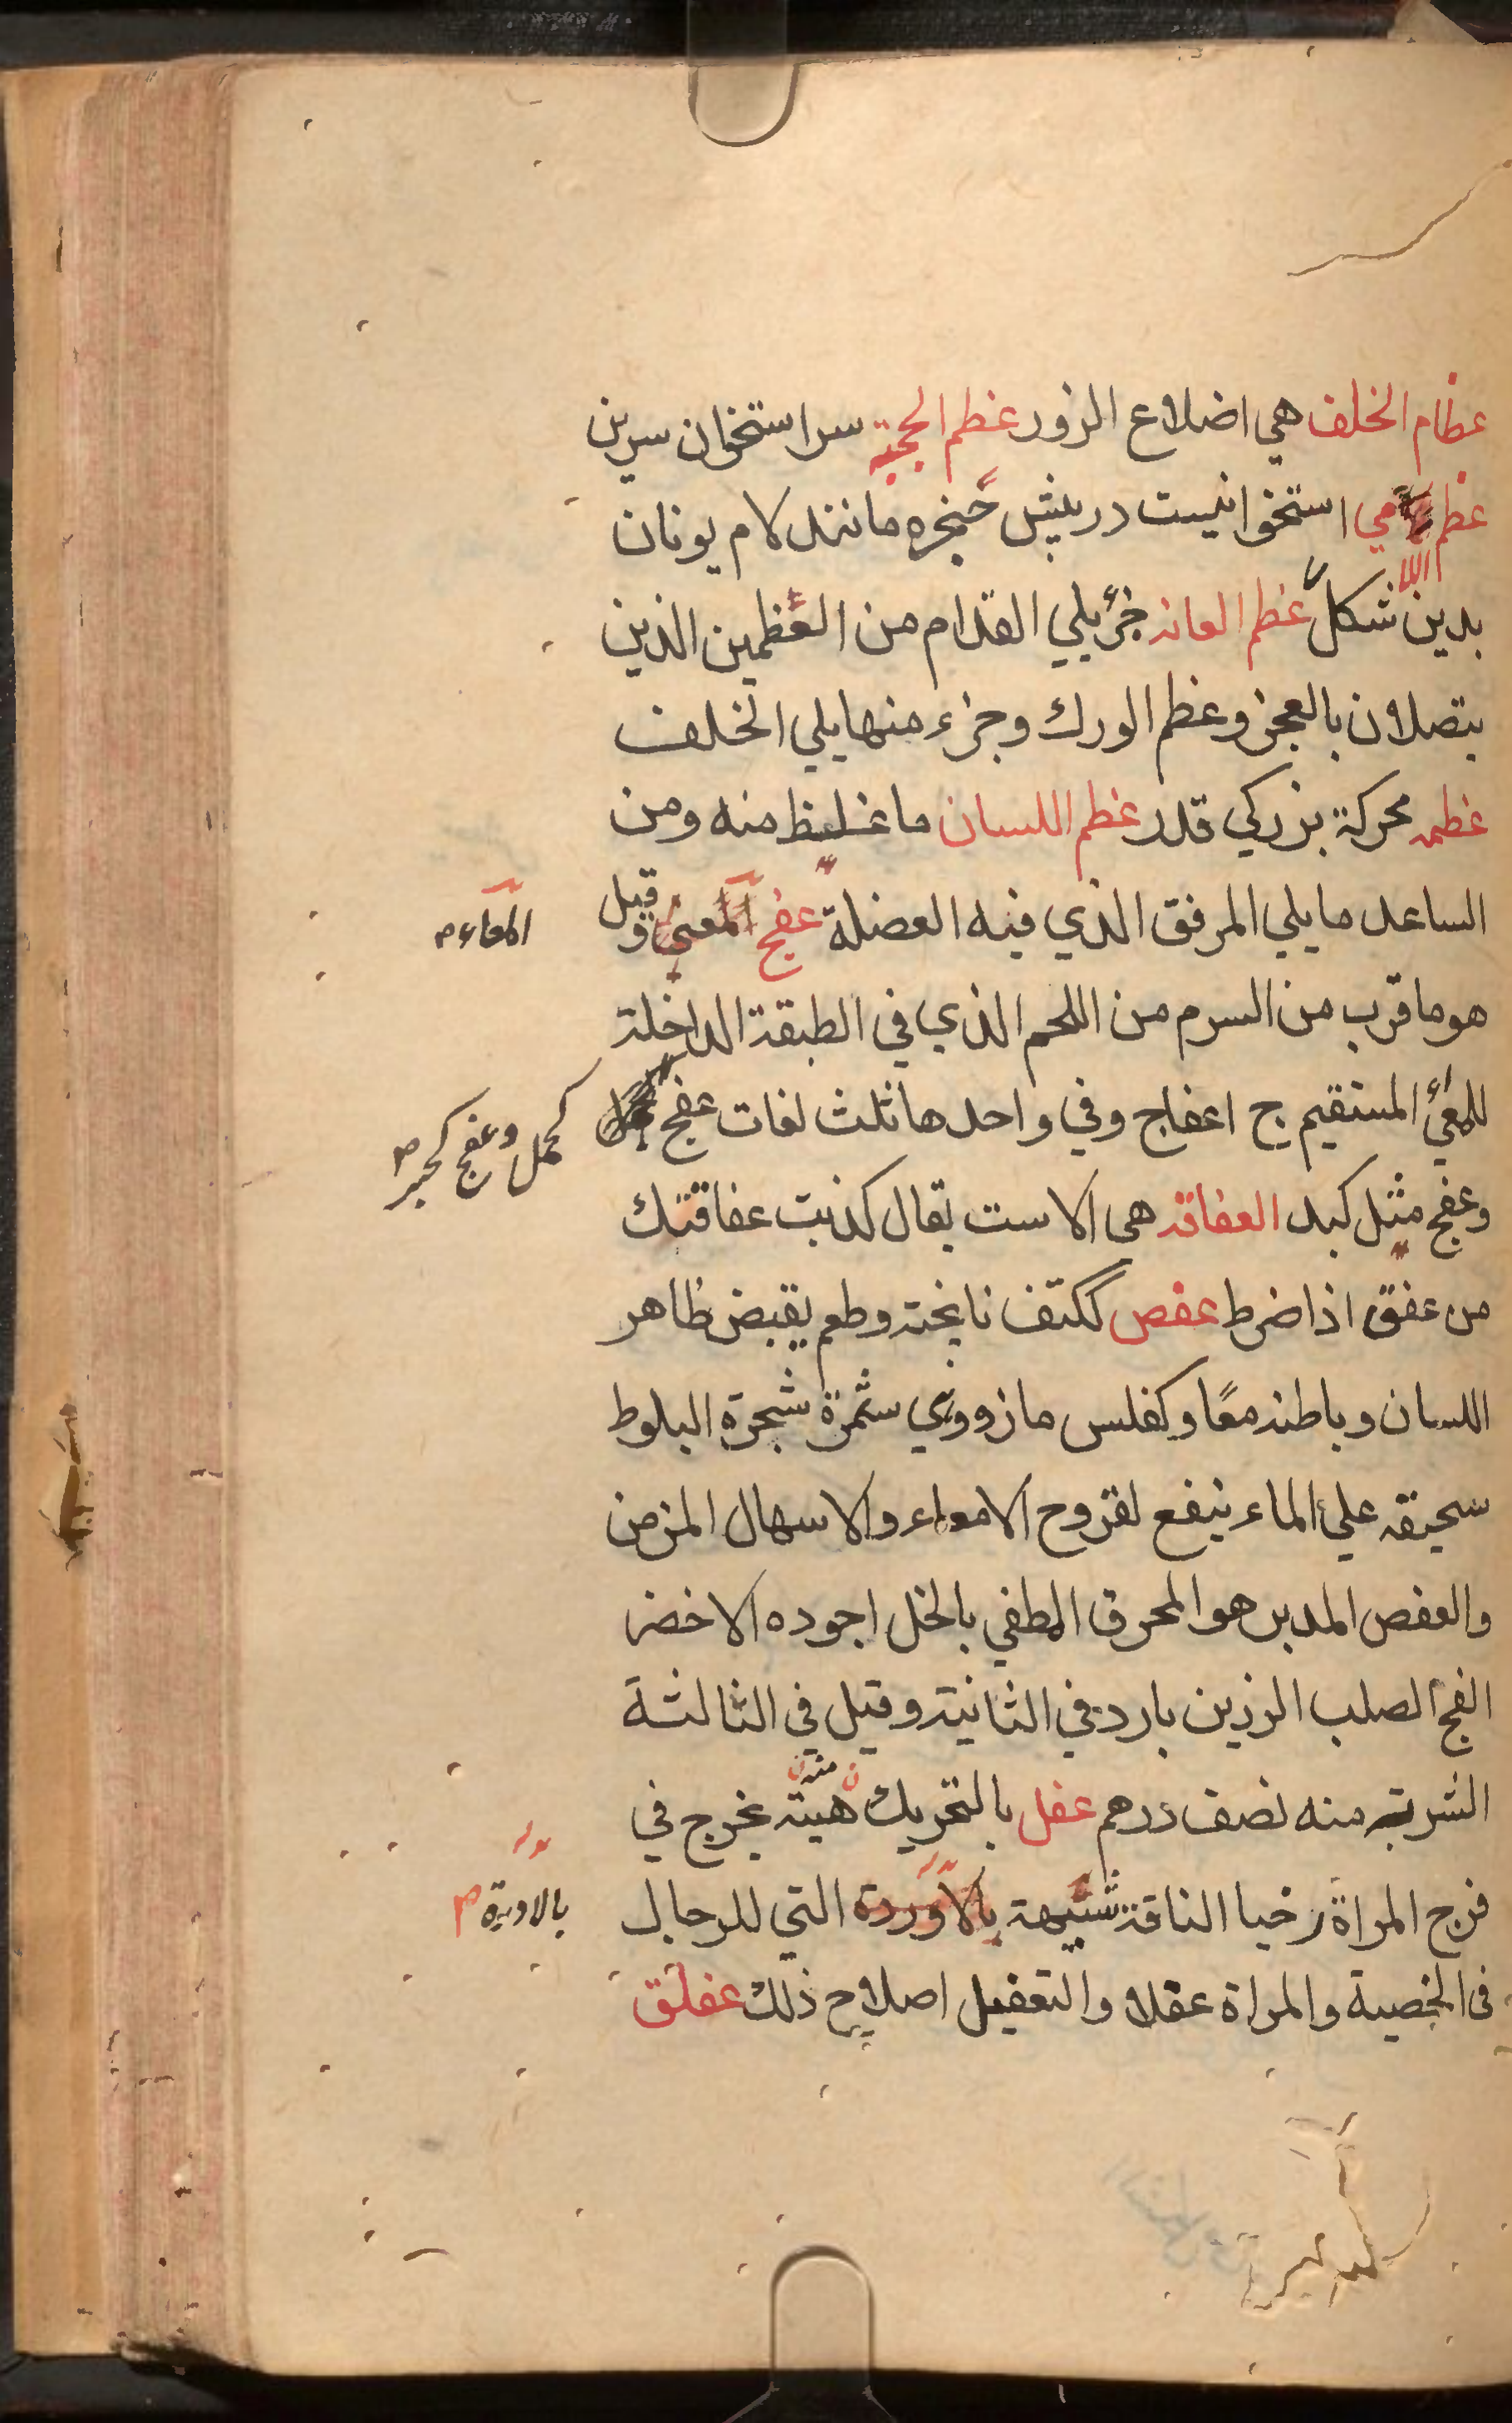 عظام الخلف هي اضلاع الزور عظم الحجبة سر استخوان سرين
عظم اللامي استخوانيست در پیش حنجره مانند لام یونان
بدين شكل عظم العانه جزء يلي القدام من العظمين الذين
يتصلان بالعجز وعظم الورك وجزء منها يلي الخلف
عظمه محركة بزركي قدر عظم اللسان ما غلظ منه ومن
الساعد ما يلي المرفق الذي فيه العضلة عفج المعى وقيل
المعاء م
هو ما قرب من السرم من اللحم الذي في الطبقة الداخلة
للمعى المستقيم ج اعفاج وفي واحدها ثلث لغات عفج
كحمل وعفج كحبر م
وعفج مثل كبد العفاقه هي الاست يقال كذبت عفاقتك
من عفق اذا ضرط عفص ككتف نا پخته وطعم يقبض ظاهر
اللسان وباطنه معًا وكفلس مازو وهي ثمرة شجرة البلوط
سحيقه على الماء ينفع لقروح الامعاء والاسهال المزمن
والعفص المدبر هو المحرق المطفي بالخل اجوده الاخضر
الفج الصلب الرزين بارد في الثانية وقيل في الثالثة
الشربة منه نصف درهم عفل بالتحريك هيئة يخرج في
فرج المراة وحيا الناقة شبيهة بالاوردة التي للرجال
بالادرة م
في الخصية والمراة عفلا والتعفيل اصلاح ذلك عفلق